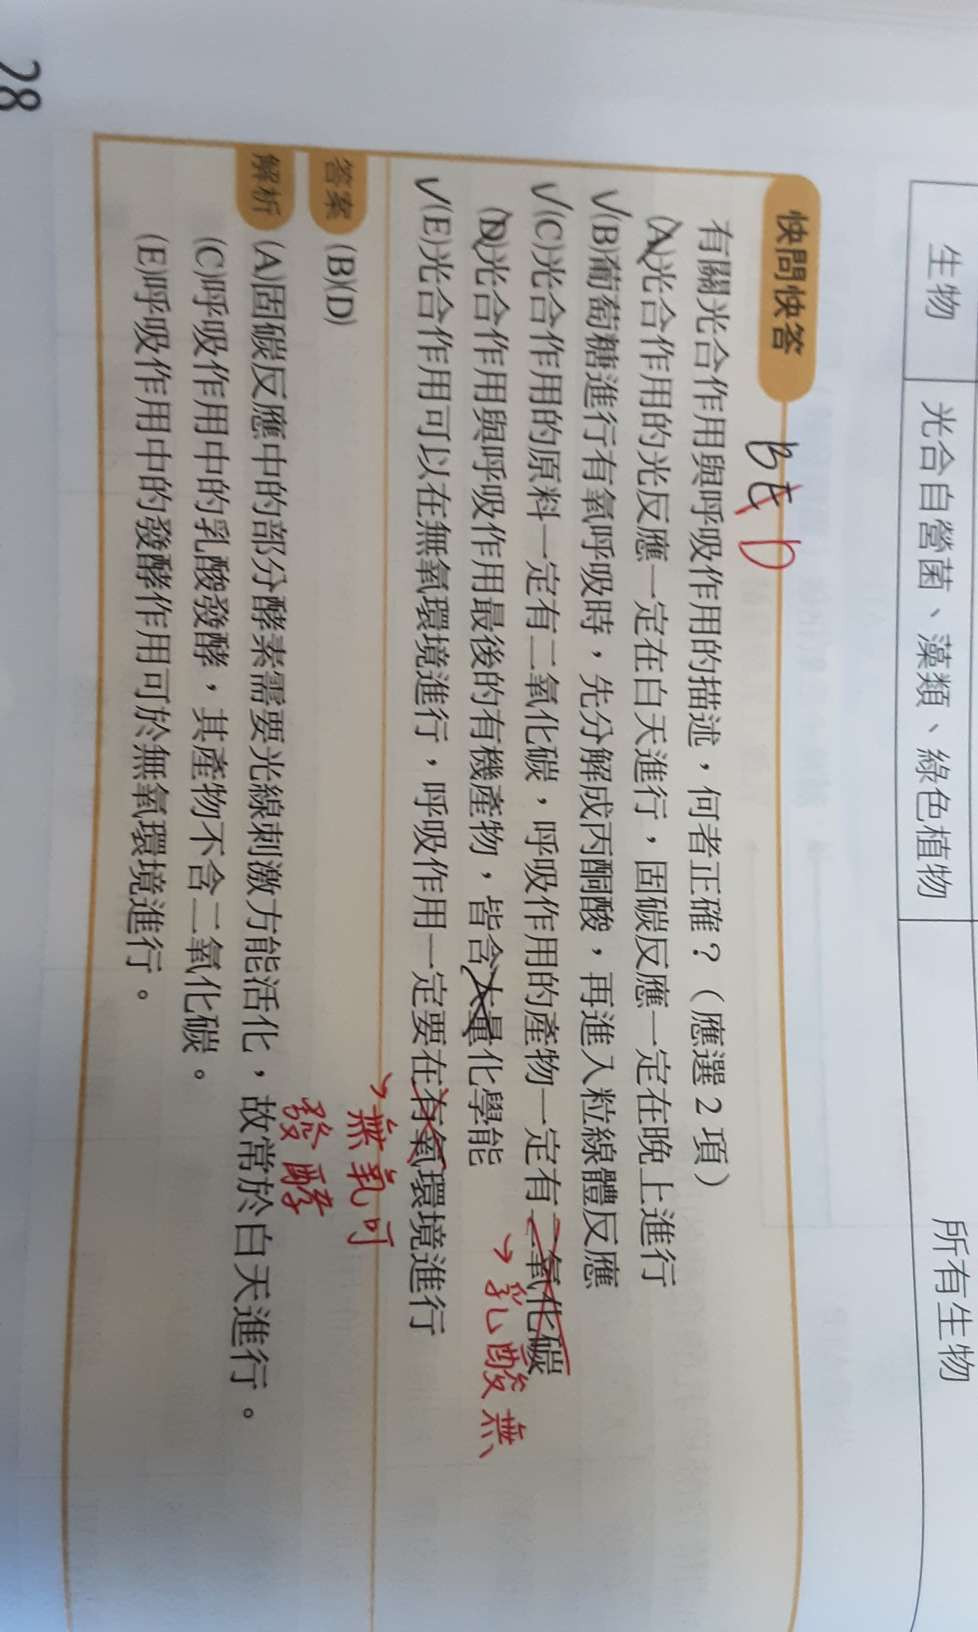 生物
光合自營菌、藻類、綠色植物
所有生物
快問快答
B E D
有關光合作用與呼吸作用的描述，何者正確？（應選 2 項）
(A)光合作用的光反應一定在白天進行，固碳反應一定在晚上進行
✓(B)葡萄糖進行有氧呼吸時，先分解成丙酮酸，再進入粒線體反應
✓(C)光合作用的原料一定有二氧化碳，呼吸作用的產物一定有二氧化碳
→乳酸無
(D)光合作用與呼吸作用最後的有機產物，皆含大量化學能
✓(E)光合作用可以在無氧環境進行，呼吸作用一定要在有氧環境進行
→無氧可
發酵
答案 (B)(D)
解析 (A)固碳反應中的部分酵素需要光線刺激方能活化，故常於白天進行。
(C)呼吸作用中的乳酸發酵，其產物不含二氧化碳。
(E)呼吸作用中的發酵作用可於無氧環境進行。
28